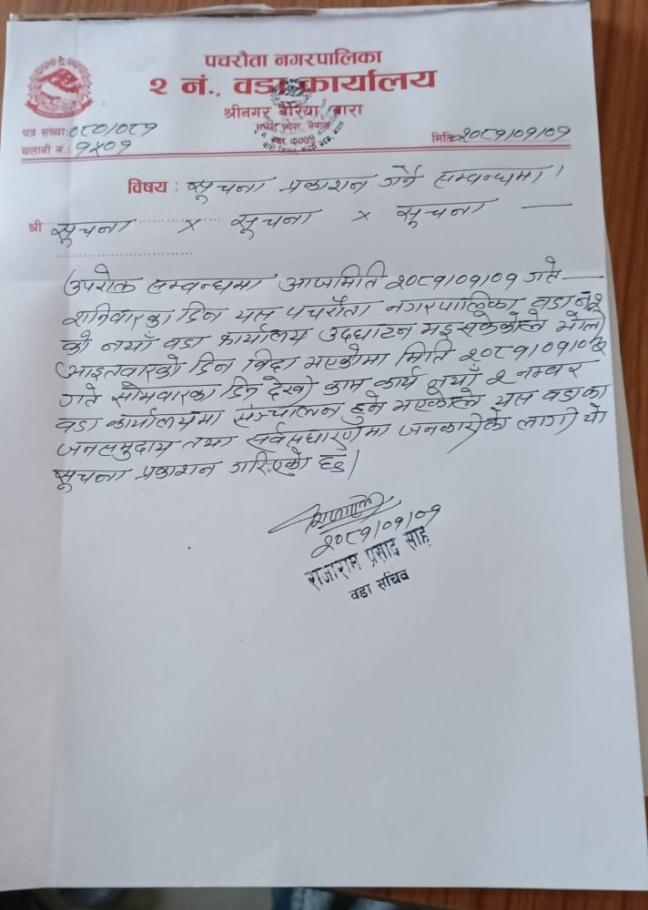 पचरौता नगरपालिका
२ नं., वडा कार्यालय
श्रीनगर बैरिया, बारा
मधेश प्रदेश, नेपाल
पत्र संख्या: ०८०/०८१
चलानी नं.: १५०१
मिति: २०८१/०१/०१
विषय : सूचना प्रकाशन गर्ने सम्वन्धमा।
श्री सूचना × सूचना × सूचना —
उपरोक्त सम्वन्धमा आज मिति २०८१/०१/०१ गते
शनिवारका दिन यस पचरौता नगरपालिका वडा नं. २
को नयाँ वडा कार्यालय उदघाटन भइसकेकोले भोली
आइतवारको दिन विदा भएकोमा मिति २०८१/०१/०३
गते सोमवारका दिन देखी काम कार्य नयाँ २ नम्वर
वडा कार्यालयमा सञ्चालन हुने भएकोले यस वडाका
जनसमुदाय तथा सर्वसधारणमा जनकारीको लागी यो
सूचना प्रकाशन गरिएको छ।
२०८१/०१/०१
राजाराम प्रसाद साह
वडा सचिव